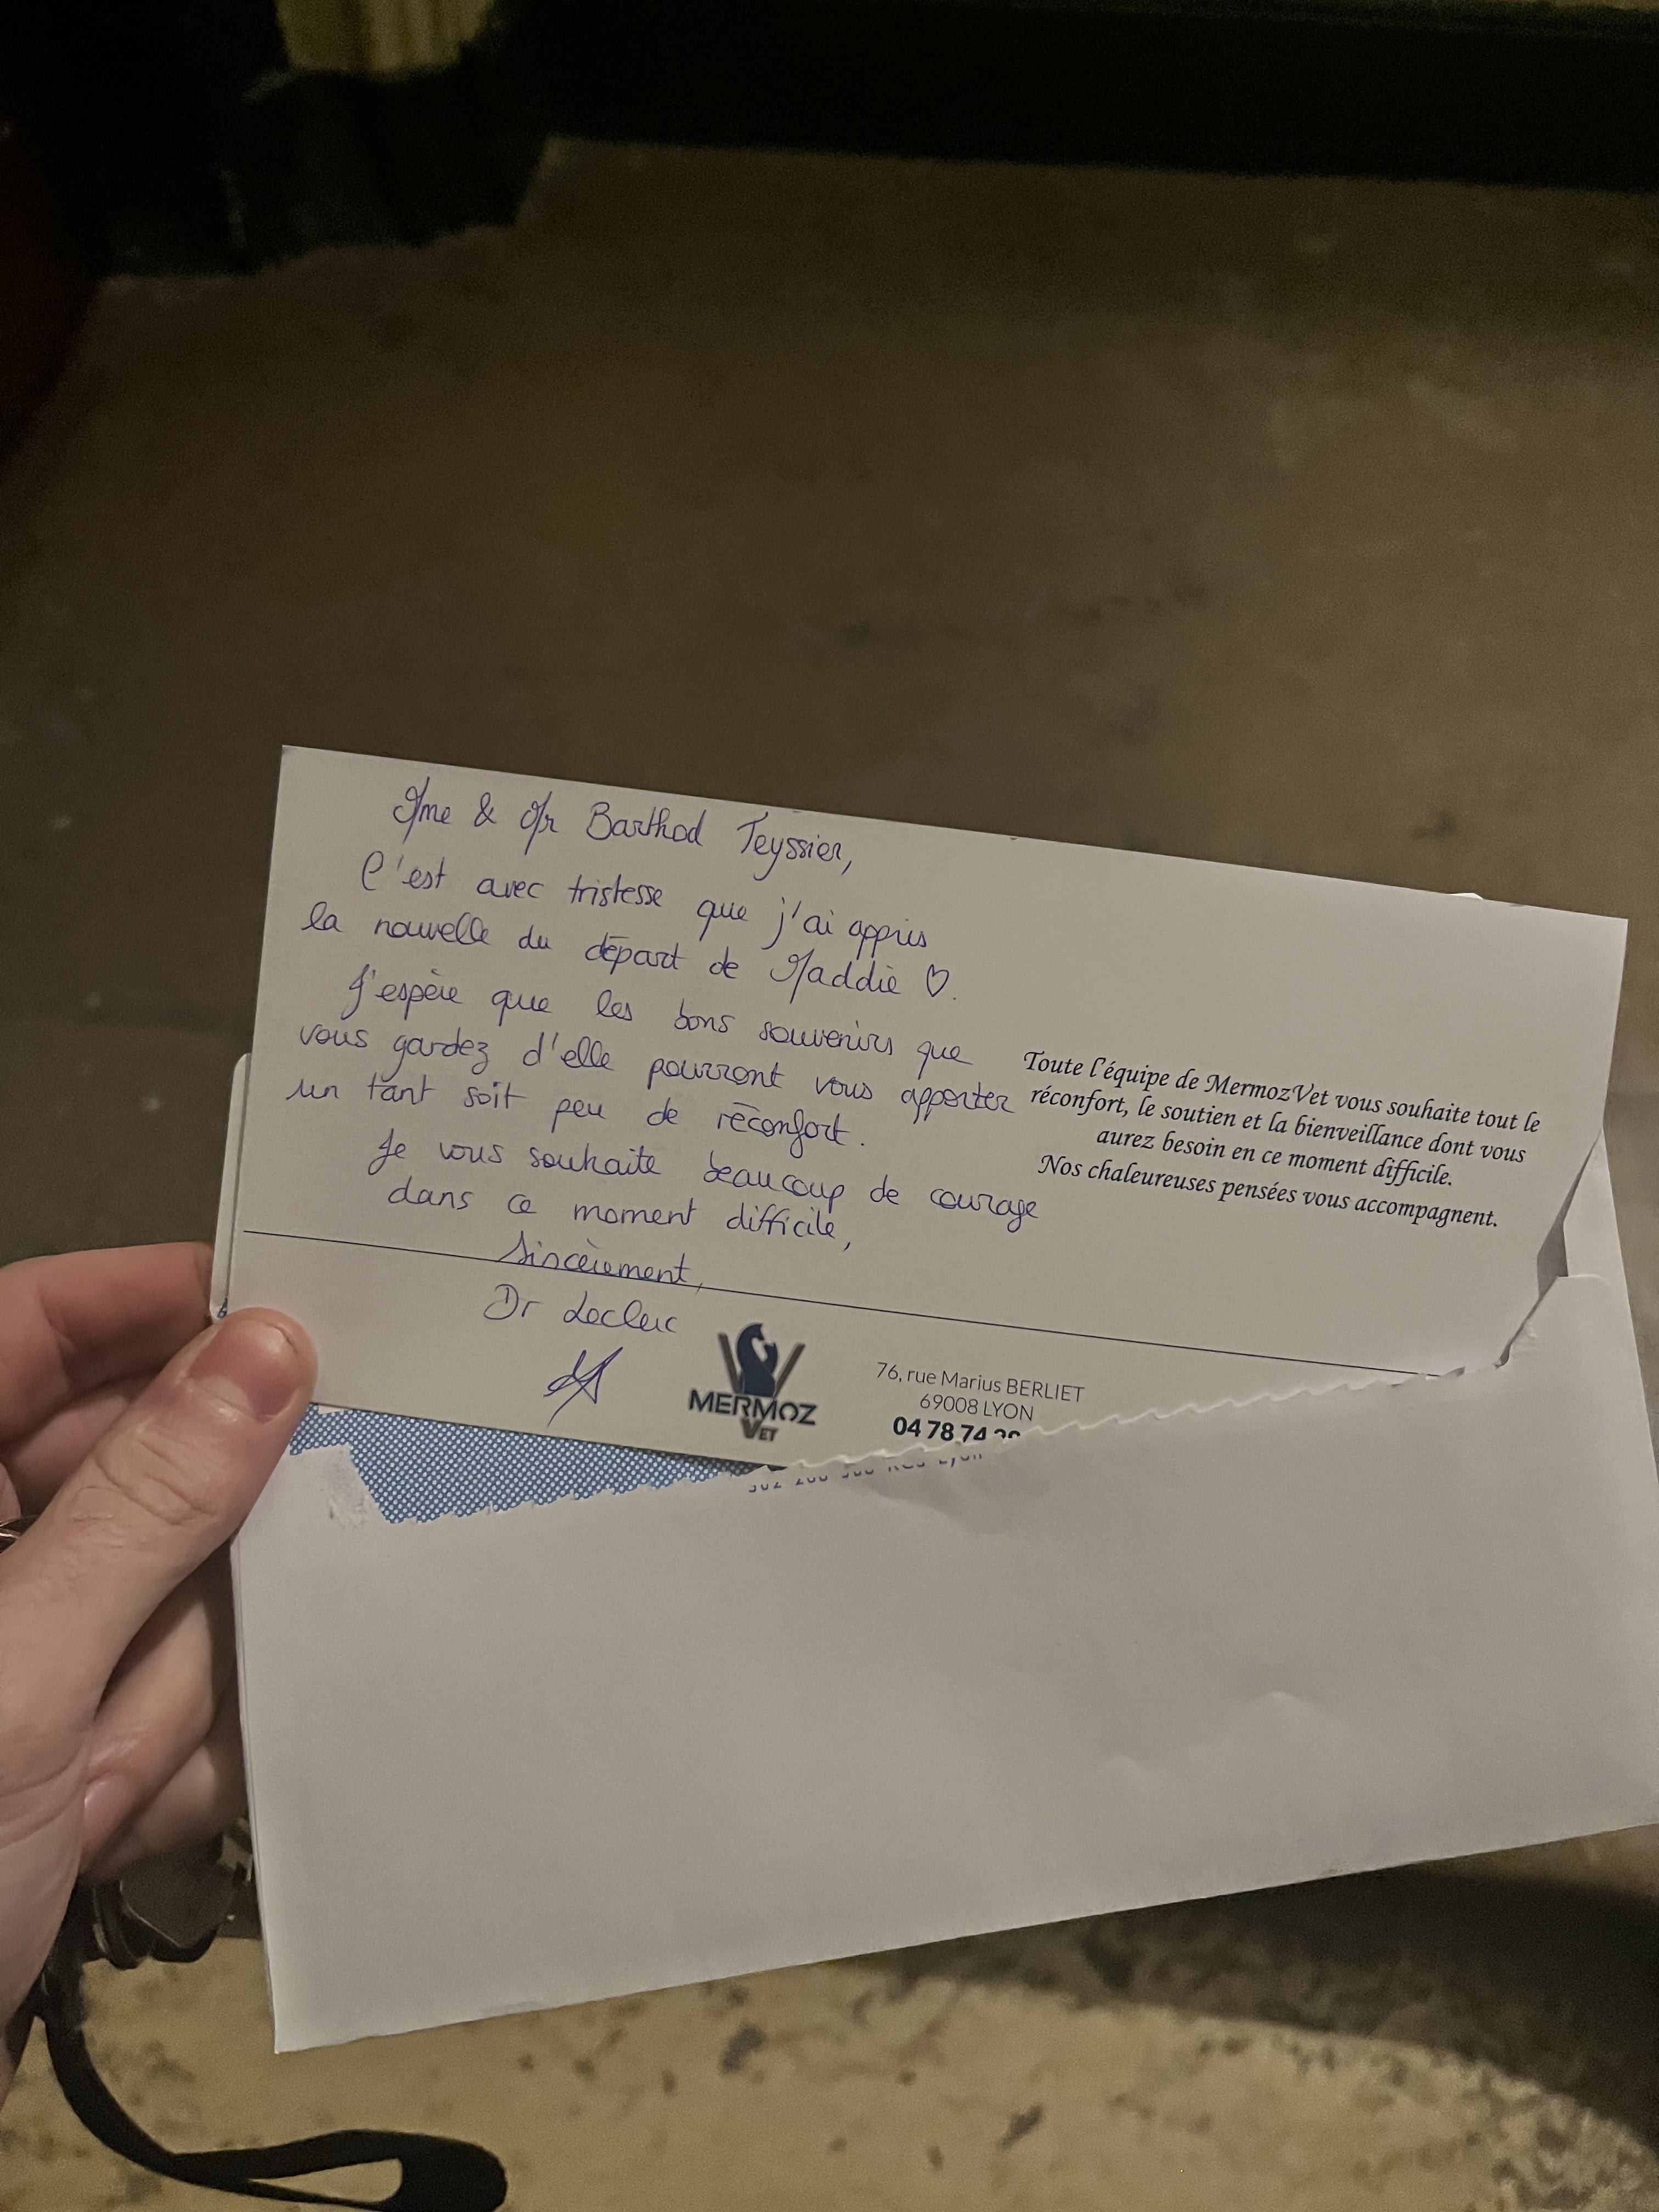 Mme & Mr Barthod Teyssier,
C'est avec tristesse que j'ai appris
la nouvelle du départ de Maddie ♡.
J'espère que les bons souvenirs que
vous gardez d'elle pourront vous apporter
un tant soit peu de réconfort.
Je vous souhaite beaucoup de courage
dans ce moment difficile,
Sincèrement,
Dr Leclerc
Toute l'équipe de MermozVet vous souhaite tout le
réconfort, le soutien et la bienveillance dont vous
aurez besoin en ce moment difficile.
Nos chaleureuses pensées vous accompagnent.
MERMOZ
VET
76, rue Marius BERLIET
69008 LYON
04 78 74